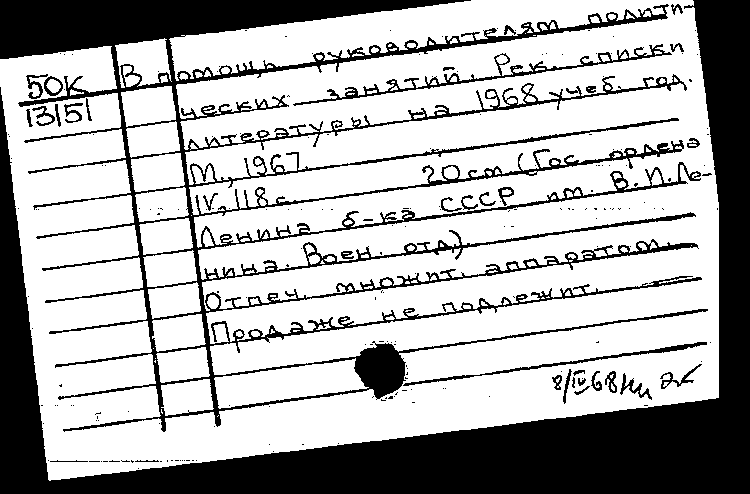 50К
13151
В помощь руководителям полити-
ческих занятий. Рек. списки
литературы на 1968 учеб. год.
М., 1967.
IV, 118 с. 20 см (Гос. ордена
Ленина б-ка СССР им. В.И.Ле-
нина. Воен. отд).
Отпеч. множит. аппаратом.
Продаже не подлежит.
8/IV 68